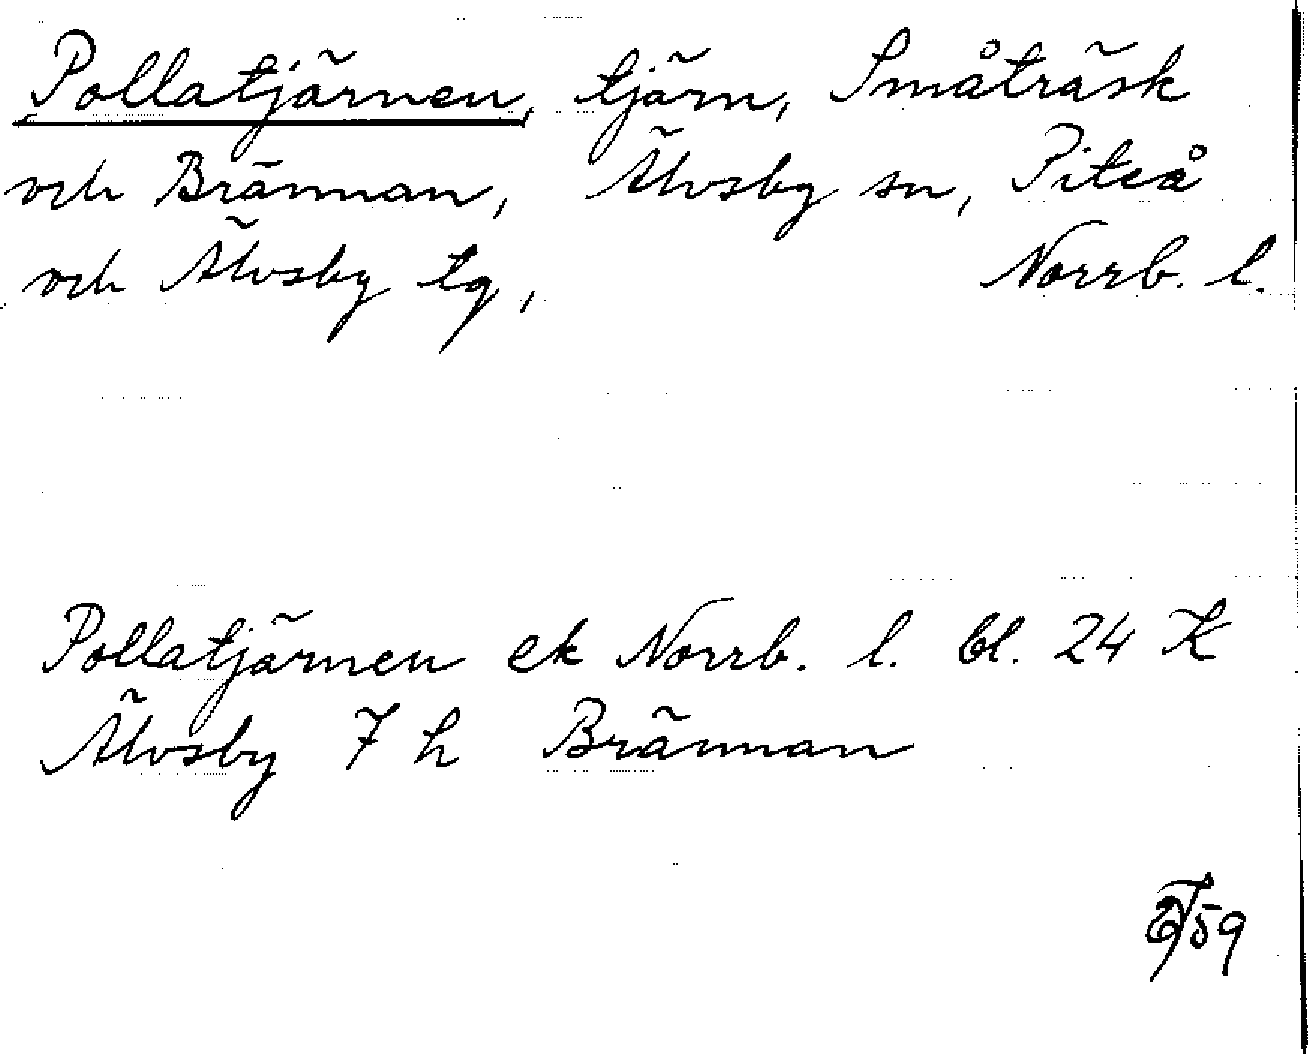 Pollatjärnen, tjärn, Småträsk
och Brännan, Älvsby sn, Piteå
och Älvsby tg, Norrb. l.
Pollatjärnen ek Norrb. l. bl. 24 K
Älvsby 7 h Brännan
59